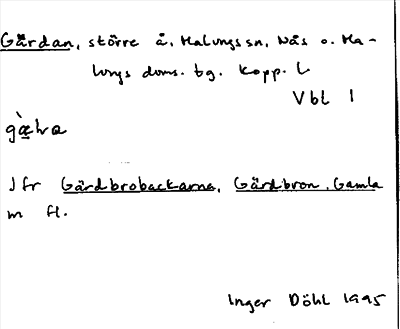 Gärdan, större å, Malungs sn, Nås o. Ma-
lungs doms. tg. Kopp. L
Vbl 1
Jfr Gärdbrobackarna, Gärdbron, Gamla
m fl.
Inger Döhl 1995